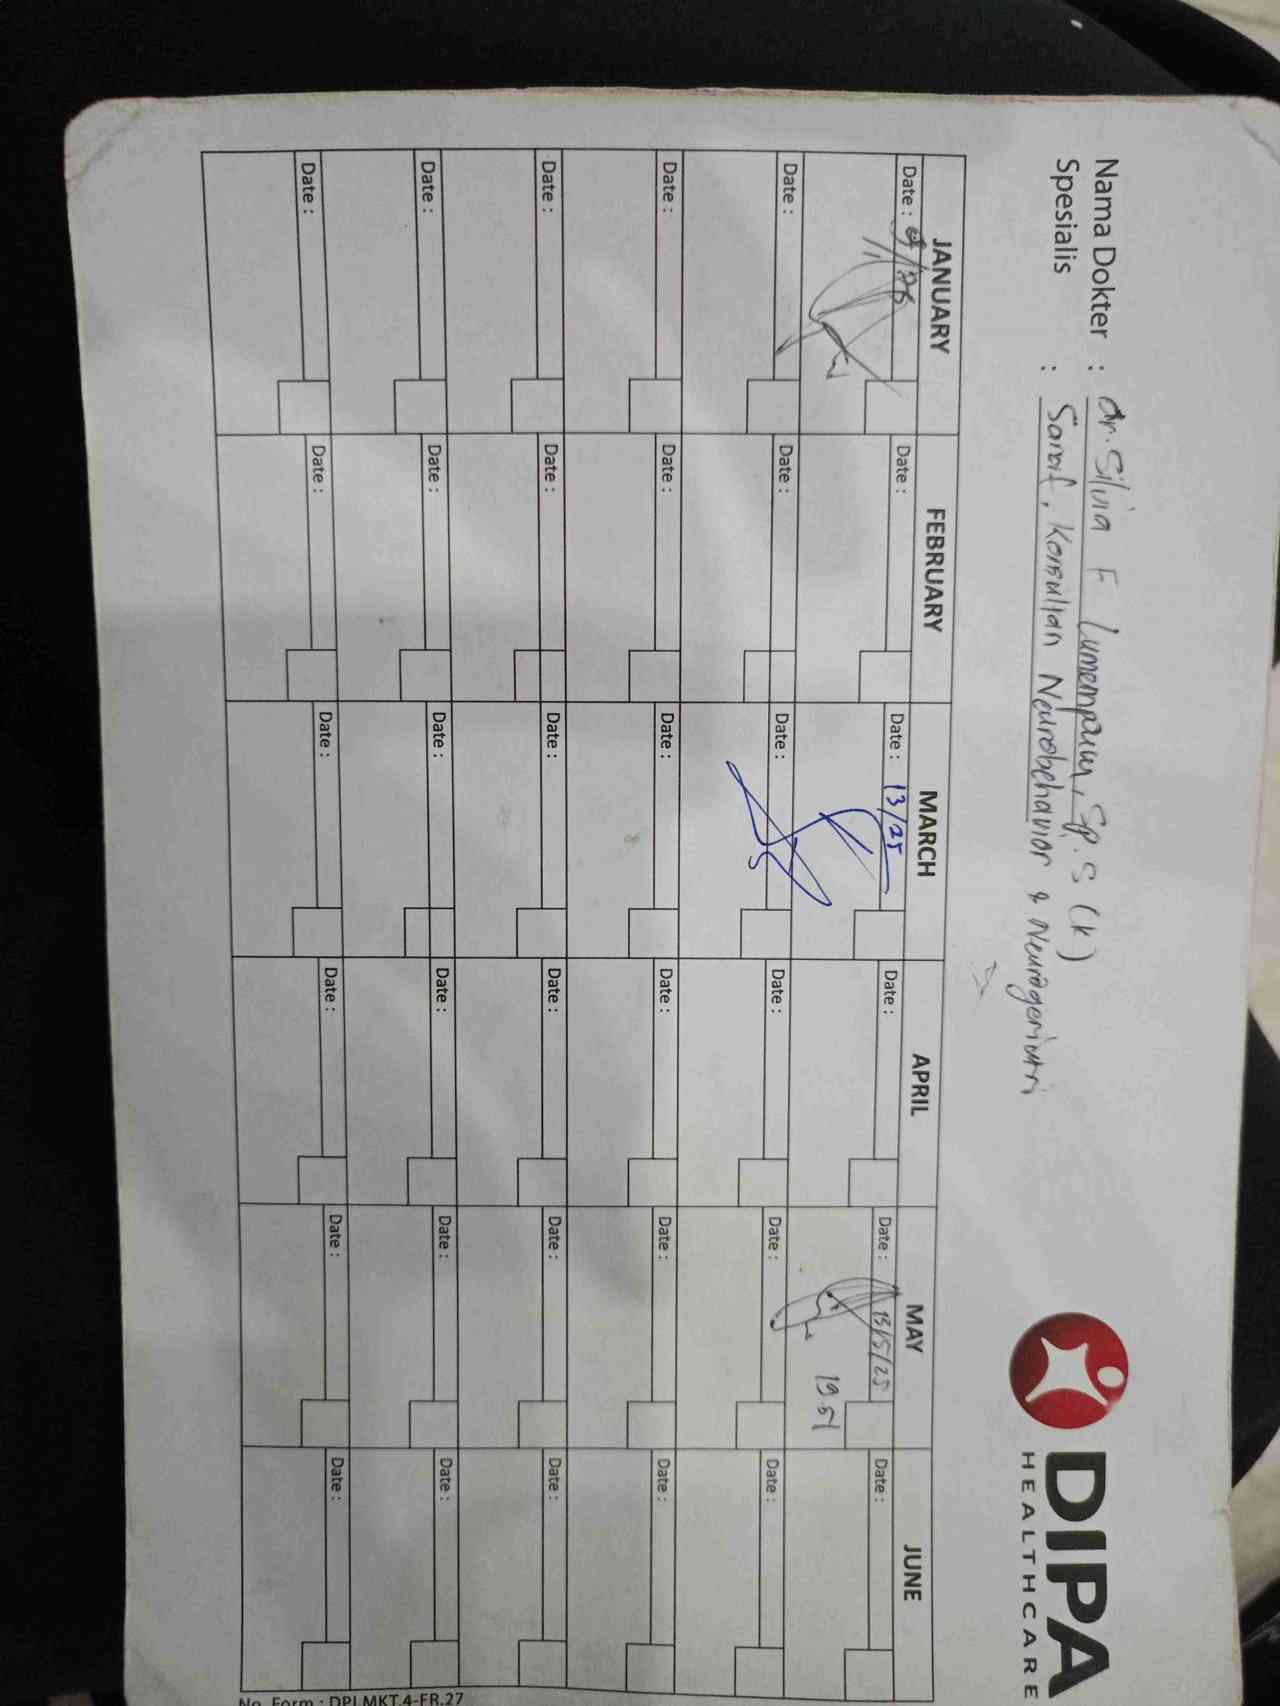 Nama Dokter : dr. Silvia F Lumempouw, Sp. S (K)
Spesialis : Saraf, Konsultan Neurobehavior & Neurogeriatri
DIPA
HEALTHCARE
JANUARY FEBRUARY MARCH APRIL MAY JUNE
Date : Date : Date : 13/25 Date : Date : 13/5/25 Date :
19.51
Date : Date : Date : Date : Date : Date :
Date : Date : Date : Date : Date : Date :
Date : Date : Date : Date : Date : Date :
Date : Date : Date : Date : Date : Date :
Date : Date : Date : Date : Date : Date :
No. Form : DPI.MKT.4-FR.27